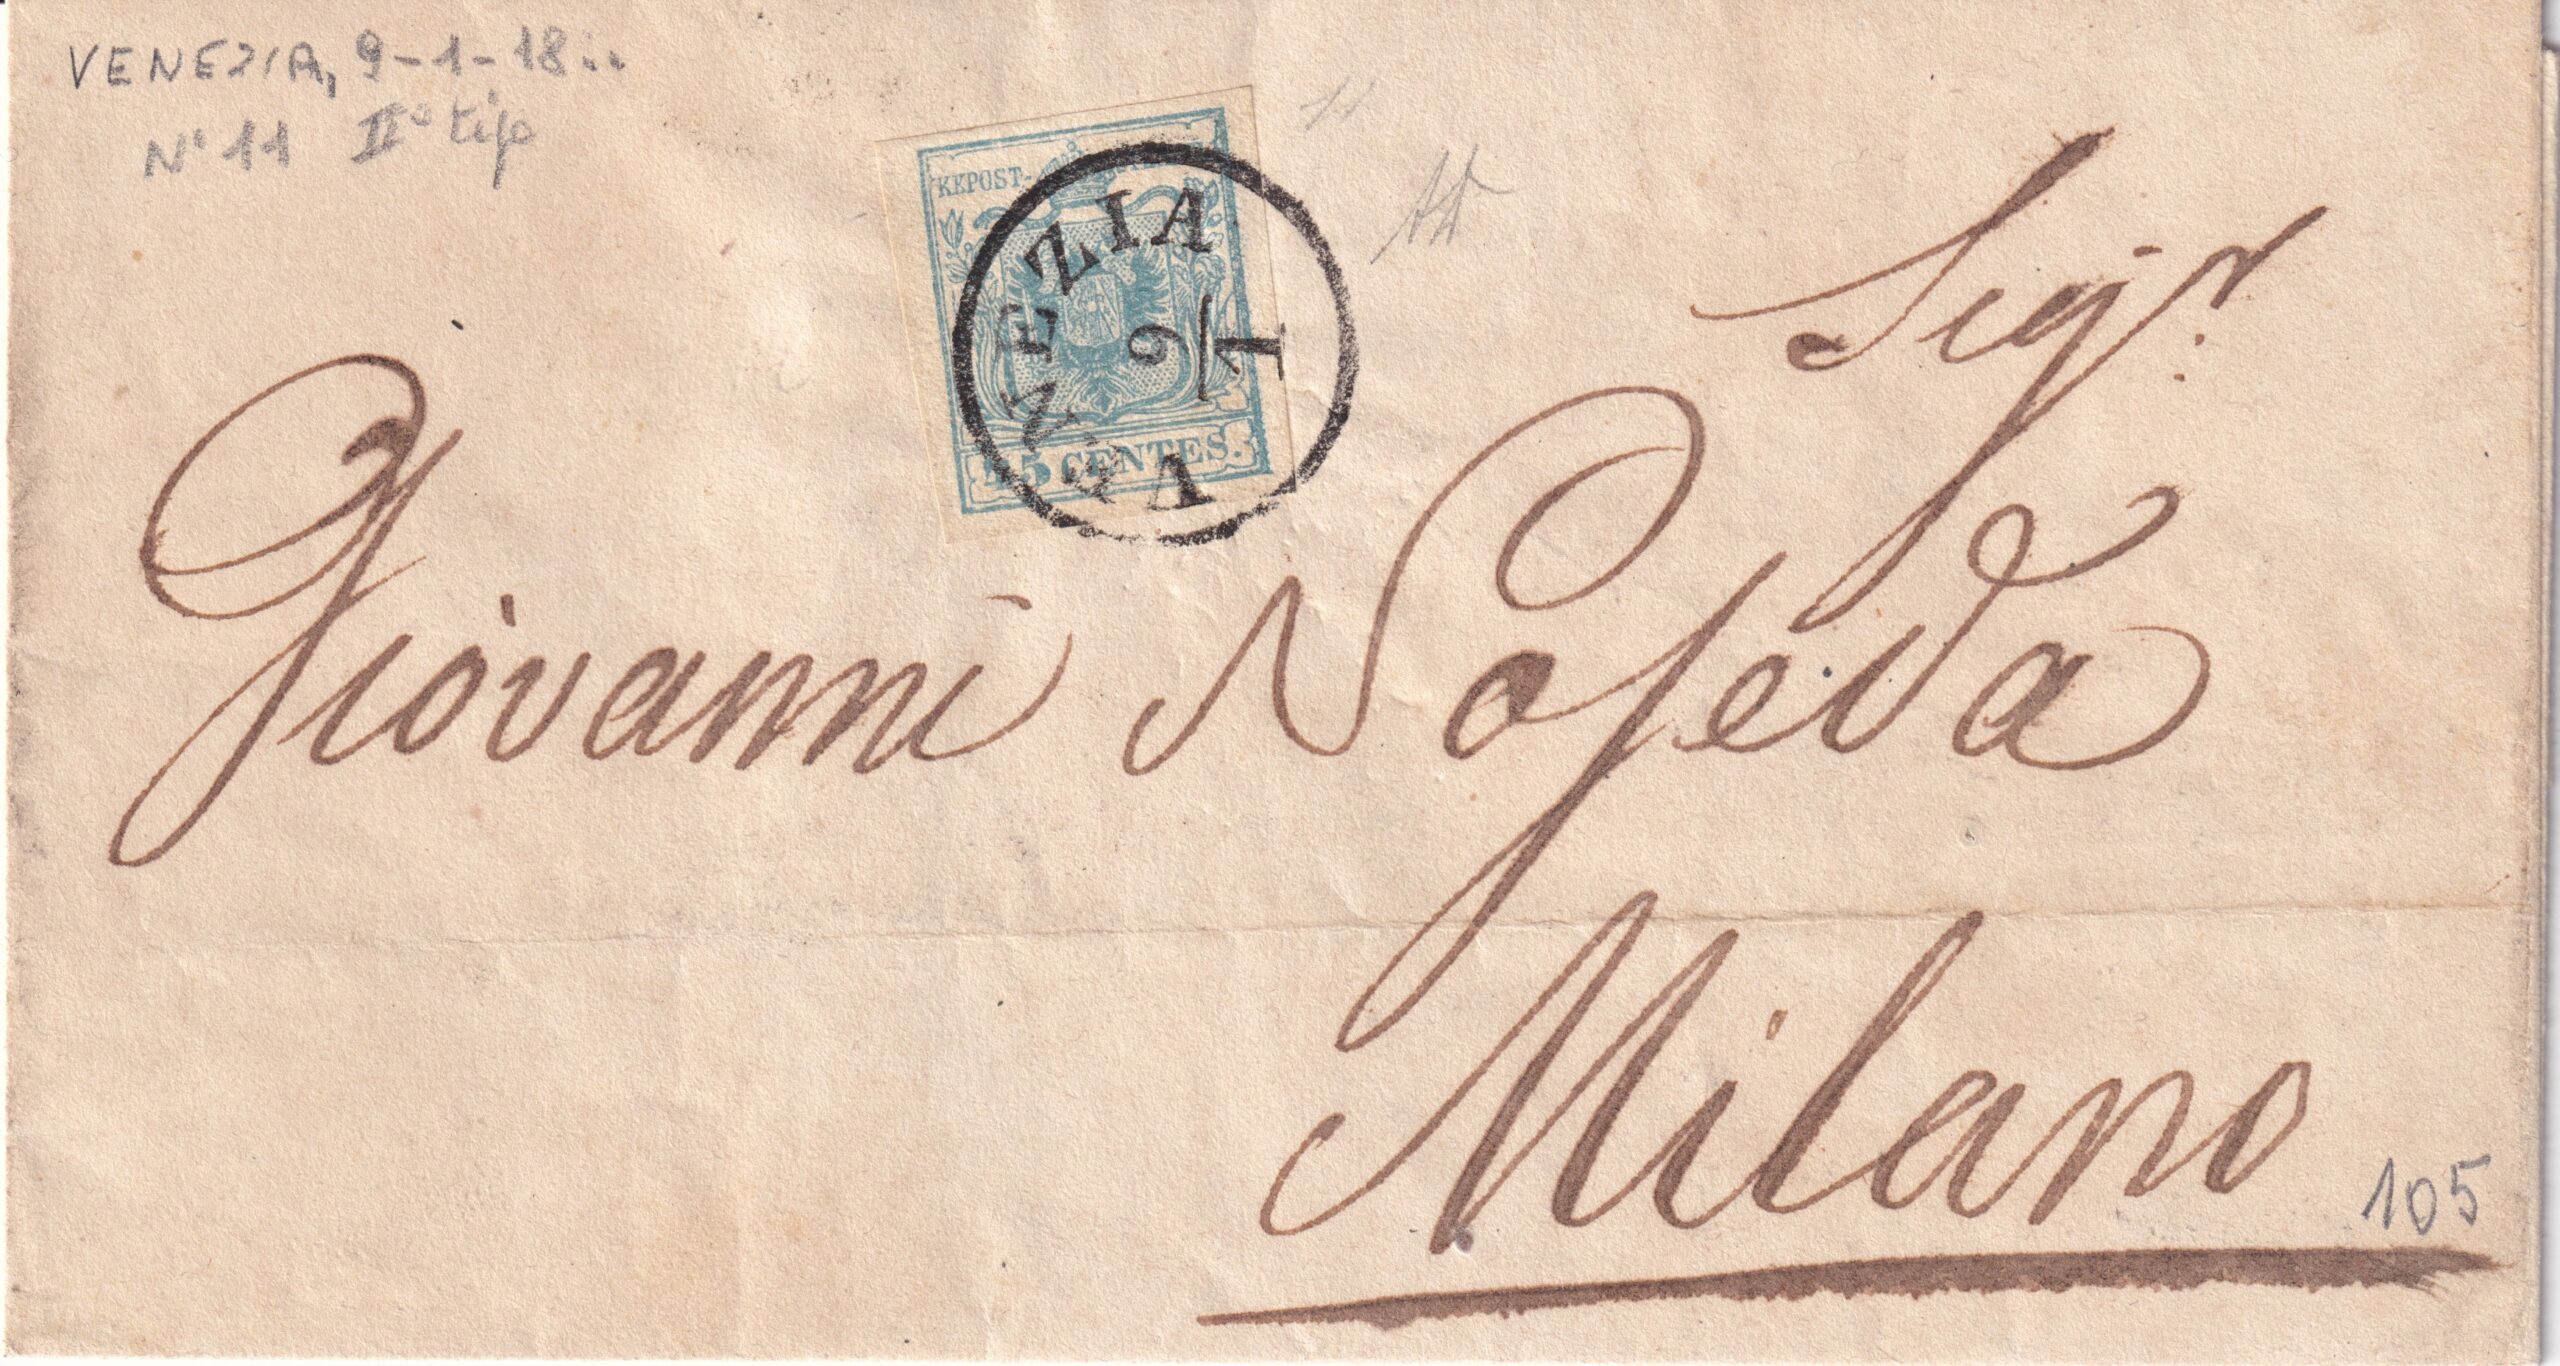 VENEZIA, 9-1-18..
N° 11 II° tip
KKPOST-
VENEZIA
9/1
45 CENTES.
Sigr.
Giovanni Noseda
Milano
105